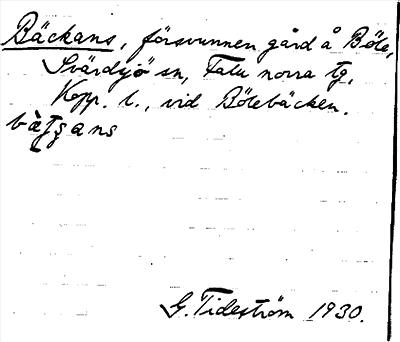 Bäckans, försvunnen gård å Böle,
Svärdsjö sn, Falu norra tg,
Kopp. l., vid Bölebäcken.
G. Tideström 1930.